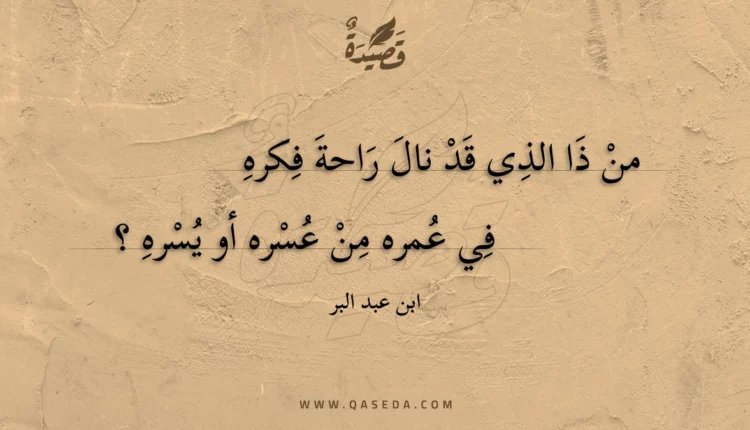 قَصِيْدَةٌ
منْ ذَا الذِي قَدْ نالَ رَاحةَ فِكرهِ
فِي عُمره مِنْ عُسْره أو يُسْرهِ ؟
ابن عبد البر
WWW.QASEDA.COM